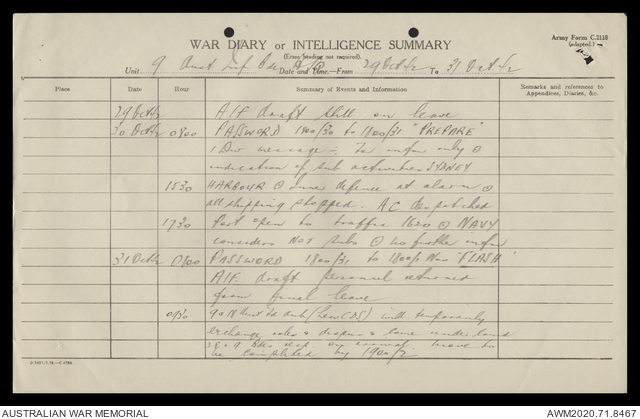 Army Form C.2118
(adapted.)
WAR DIARY or INTELLIGENCE SUMMARY
(Erase heading not required).
Unit 9 Aust Inf Bde Date and Time—From 29 Oct 42 To 31 Oct 42
Place Date Hour Summary of Events and Information Remarks and references to Appendices, Diaries, &c.
29 Oct 42 AIF draft still on leave
30 Oct 42 0800 PASSWORD 1800/30 to 1800/31 "PREPARE"
1 Div message :- To infm only
indication of sub activities SYDNEY
1530 HARBOUR Inner defence at alarm
all shipping stopped. AC despatched
1730 Port open to traffic 1620 NAVY
considers NOT subs No further infm
31 Oct 42 0800 PASSWORD 1800/31 to 1800/1 Nov "FLASH"
AIF draft personnel returned
from final leave
0930 9 & 18 Aust Fd Amb will temporarily
exchange roles & dispns & come under comd
28 & 9 Bdes on arrival. Move to
be completed by 1900/2
AUSTRALIAN WAR MEMORIAL
AWM2020.71.8467